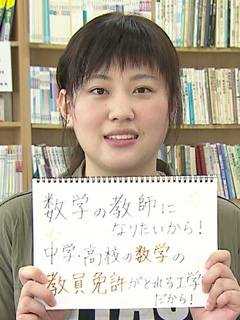 数学の教師に
なりたいから!
中学・高校の数学の
教員免許がとれる工学
だから!